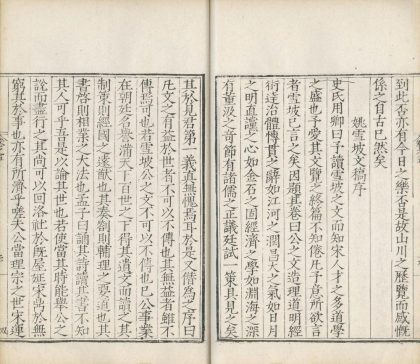 到此否亦有今日之景否是故山川之歷覽而感慨
係之自古已然矣
姚雪坡文稿序
史氏用卿曰予讀雪坡之文而知宋人才之多道學
之盛也予愛其文覽之終篇不知倦凡予意所欲言
者雪坡已言之矣因題其卷曰公之文造理道明經
術達治體傳其辭如江河之潤昌大之氣如日月
之明直讜之心如金石之固經濟之學如淵海之深
有董汲之奇節有諸儒之正議廷試一策具見之矣
其於見於君第一義直無愧焉耳於是又僣爲之序曰
凡文之有益於世者不可以不傳也其無益者雖不
傳焉可也若雪坡公之文不可以不傳也已公事業
在朝廷名譽滿天下百世之下得其遺文而讀之
制策則經國之遠猷也其奏劄則輔理之要道也其
書啓則相業之大法也孟子曰誦其詩讀其書不知
其人可乎吾是以論其世也若使當其時能舉公之
說而盡行之其尚可以回洛社於既屋延宋鼎於無
窮其於事也亦有所濟乎嗟夫公當理宗之世宋運